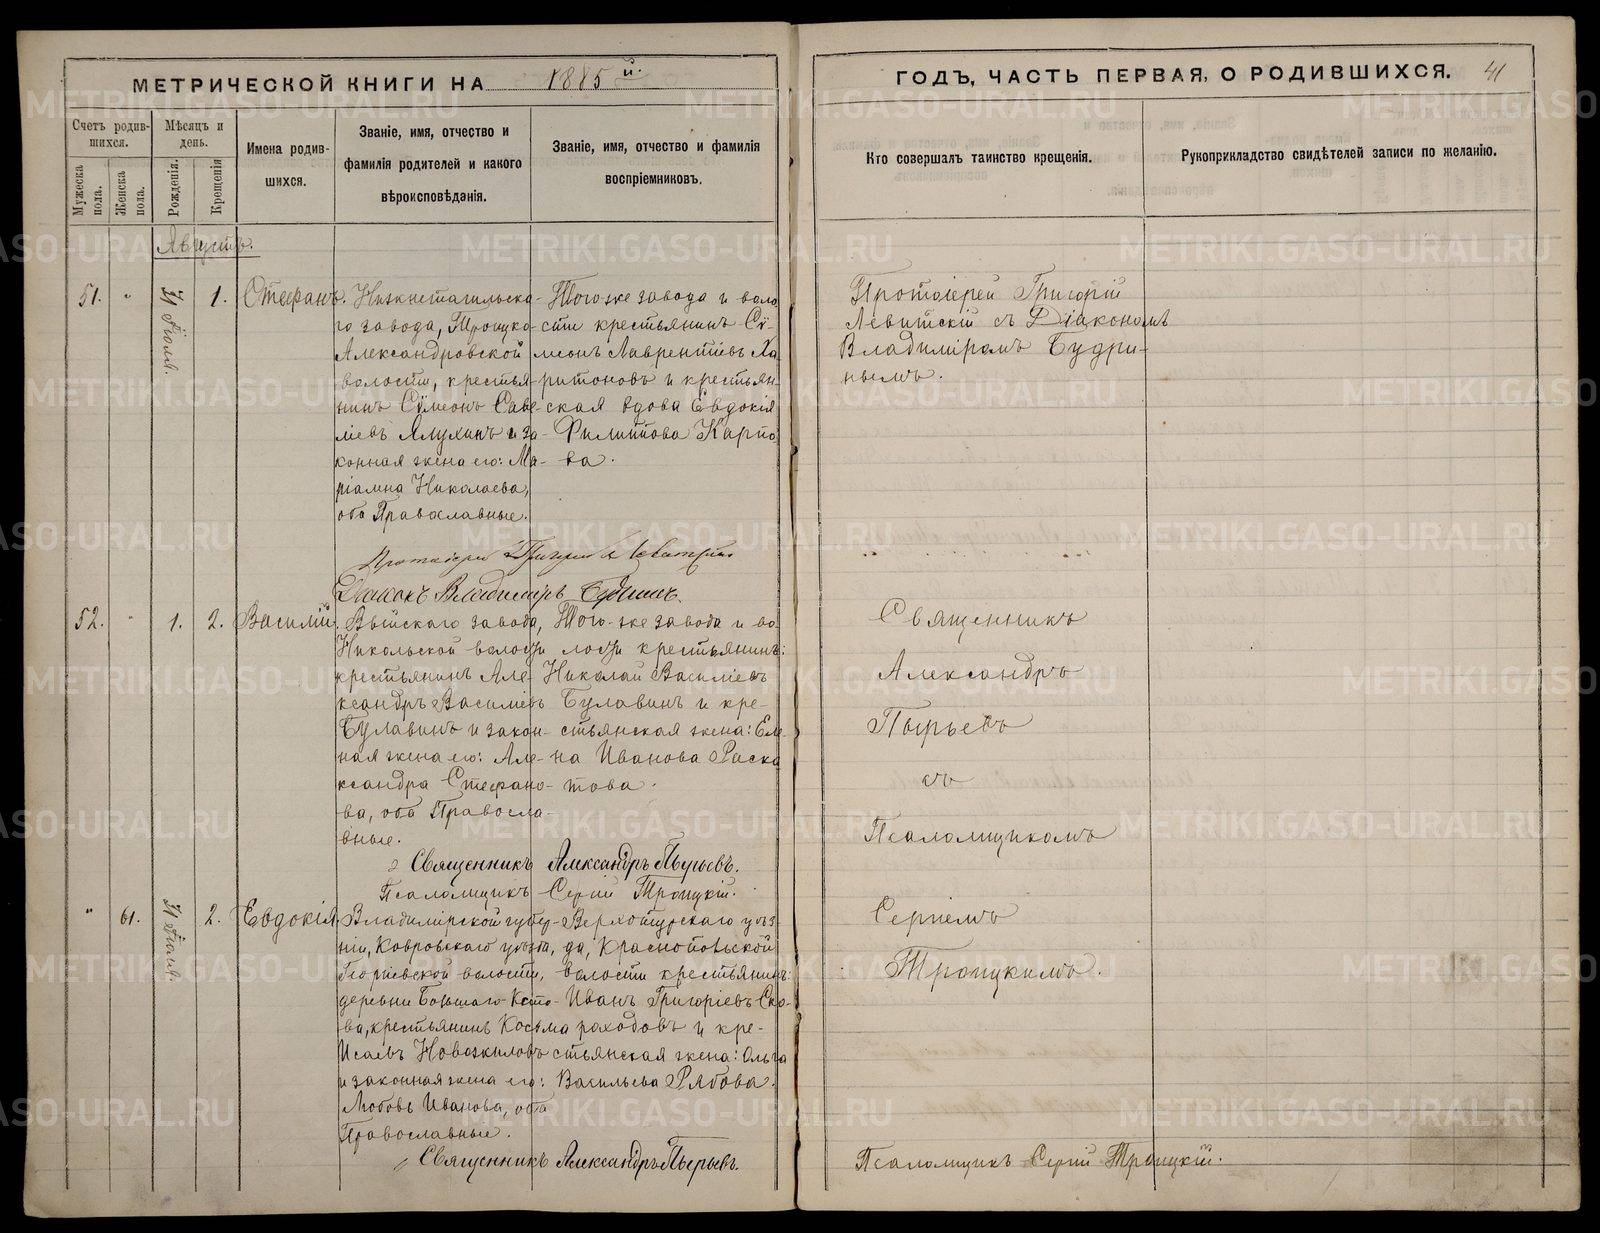 МЕТРИЧЕСКОЙ КНИГИ НА 1885й.
ГОДЪ, ЧАСТЬ ПЕРВАЯ, О РОДИВШИХСЯ. 41
Счетъ родив-
шихся.
Мѣсяцъ и
день.
Мужеска
пола.
Женска
пола.
Рожденія.
Крещенія
Имена родив-
шихся.
Званіе, имя, отчество и
фамилія родителей и какого
вѣроисповѣданія.
Званіе, имя, отчество и фамилія
воспріемниковъ.
Кто совершалъ таинство крещенія.
Рукоприкладство свидѣтелей записи по желанію.
Августъ.
51. " 31 Іюля. 1. Стефанъ.
Нижнетагильска-
го завода, Троицко-
Александровской
волости, крестья-
нинъ Сѵмеонъ Саве-
ліевъ Алухинъ и за-
конная жена его: Ма-
ріамна Николаева,
оба Православные.
Того-же завода и воло-
сти крестьянинъ Сѵ-
меонъ Лаврентіевъ Ха-
ритоновъ и крестьян-
ская вдова Евдокія
Филиппова Карпо-
ва.
Протоіерей Григорій
Левитскій съ Діакономъ
Владиміромъ Будри-
нымъ.
Протоіерей Григорій Левитскій
Діаконъ Владиміръ Будринъ.
52. " 1. 2. Василій.
Выйскаго завода,
Никольской волости
крестьянинъ Але-
ксандръ Василіевъ
Булавинъ и закон-
ная жена его: Але-
ксандра Стефано-
ва, оба Правосла-
вные.
Того-же завода и во-
лости крестьянинъ:
Николай Василіевъ
Булавинъ и кре-
стьянская жена: Еле-
на Иванова Раска
това.
Священникъ
Александръ
Пырьевъ
съ
Псаломщикомъ
Сергіемъ
Троицкимъ.
Священникъ Александръ Пырьевъ.
Псаломщикъ Сергій Троицкій.
" 61. 31 Іюля. 2. Евдокія.
Владимірской губер-
ніи, Ковровскаго уѣзда,
Георгіевской волости,
деревни Большаго-
ва, крестьянинъ Косьма
Исаевъ Новожиловъ
и законная жена его:
Любовь Иванова, оба
Православные.
Верхотурскаго уѣз-
да, Краснопольской
волости крестьянинъ:
Иванъ Григоріевъ Ско-
роходовъ и кре-
стьянская жена: Ольга
Васильева Рябова.
Священникъ Александръ Пырьевъ.
Псаломщикъ Сергій Троицкій.
METRIKI.GASO-URAL.RU